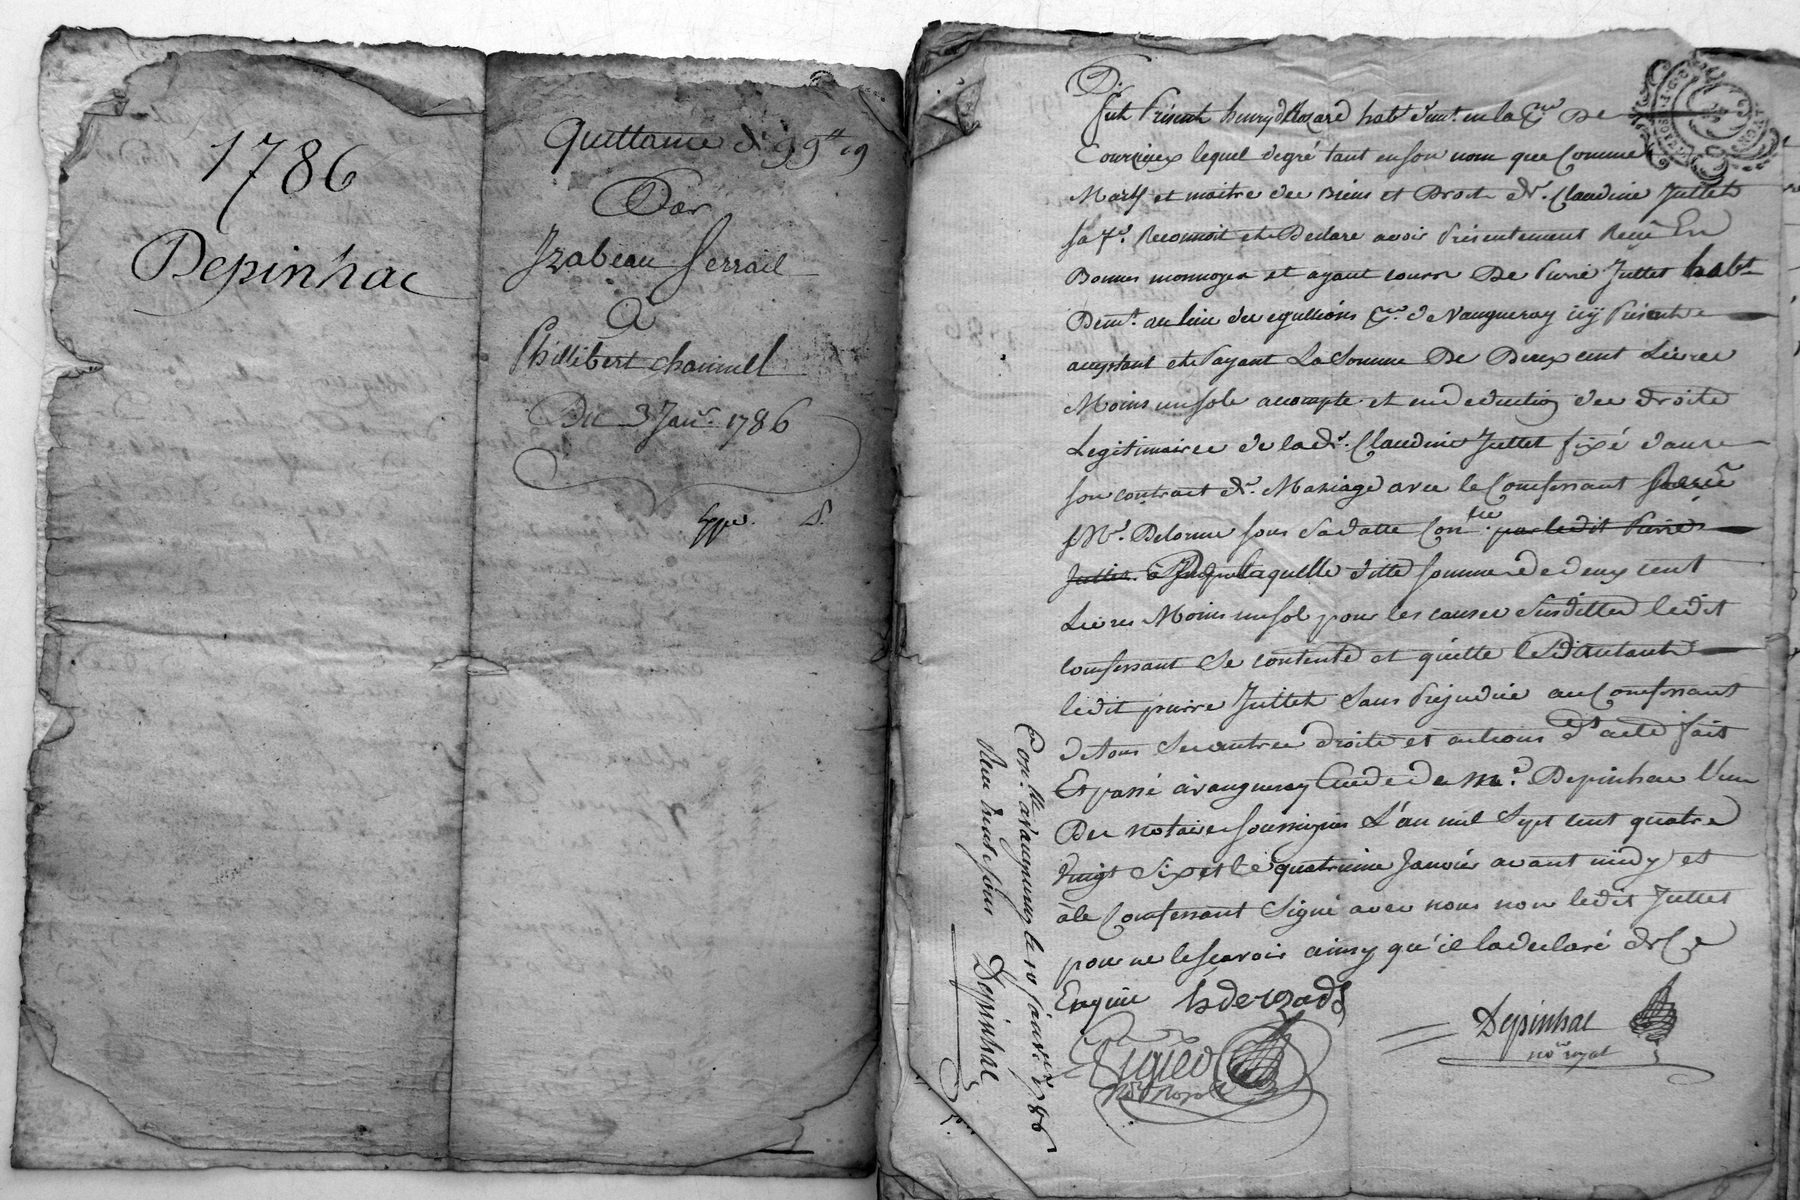 1786
Depinhac
Quittance de 99 tt 19
Par
Izabeau Serrail
A
Phillibert chainiel
Du 3 Janr. 1786
Expé. S.
Fut Présent henry habt. demt. en la prse. De
Courzieux lequel degré tant en son nom que Comme
Mary et maitre des Biens et Droit de. Claudine Jullet
sa fe. Reconnoit et Declare avoir Présentement Reçu En
Bonnes monnoyes et ayant cours De Pierre Jullet habt.
Demt. au lieu des eguillions prse. de Vaugneray icy Présent
acceptant et Payant La Somme De Deux cent Livres
Moins un sols accompte et en deduction des droits
Legitimaires de lade. Claudine Jullet fixé dans
son contrat de. Mariage avec le Confessant Receu
Me. Delorme sous Sa datte Conlée par ledit Pierre
Jullet à laquelle ditte somme de deux cent
Livres Moins un sol pour les causes Susdittes ledit
confessant Se contente et quitte d'autant
ledit pierre Jullet Sans Préjudice au Confessant
de tous Ses autres droits et actions dt acte fait
Et passé à vaugneray Etude de Me. Depinhac l'un
Des notaires soussignés L'an mil Sept cent quatre
vingt Six et le quatrieme Janvier avant midy et
à le Confessant Signé avec nous non ledit Jullet
pour ne le scavoir ainsy qu'il la declaré de Ce
Enquis
Depinhac
nore royal
Con. lé a vaugneray le 10 janvr. 1786
Reçu trente sous Depinhac